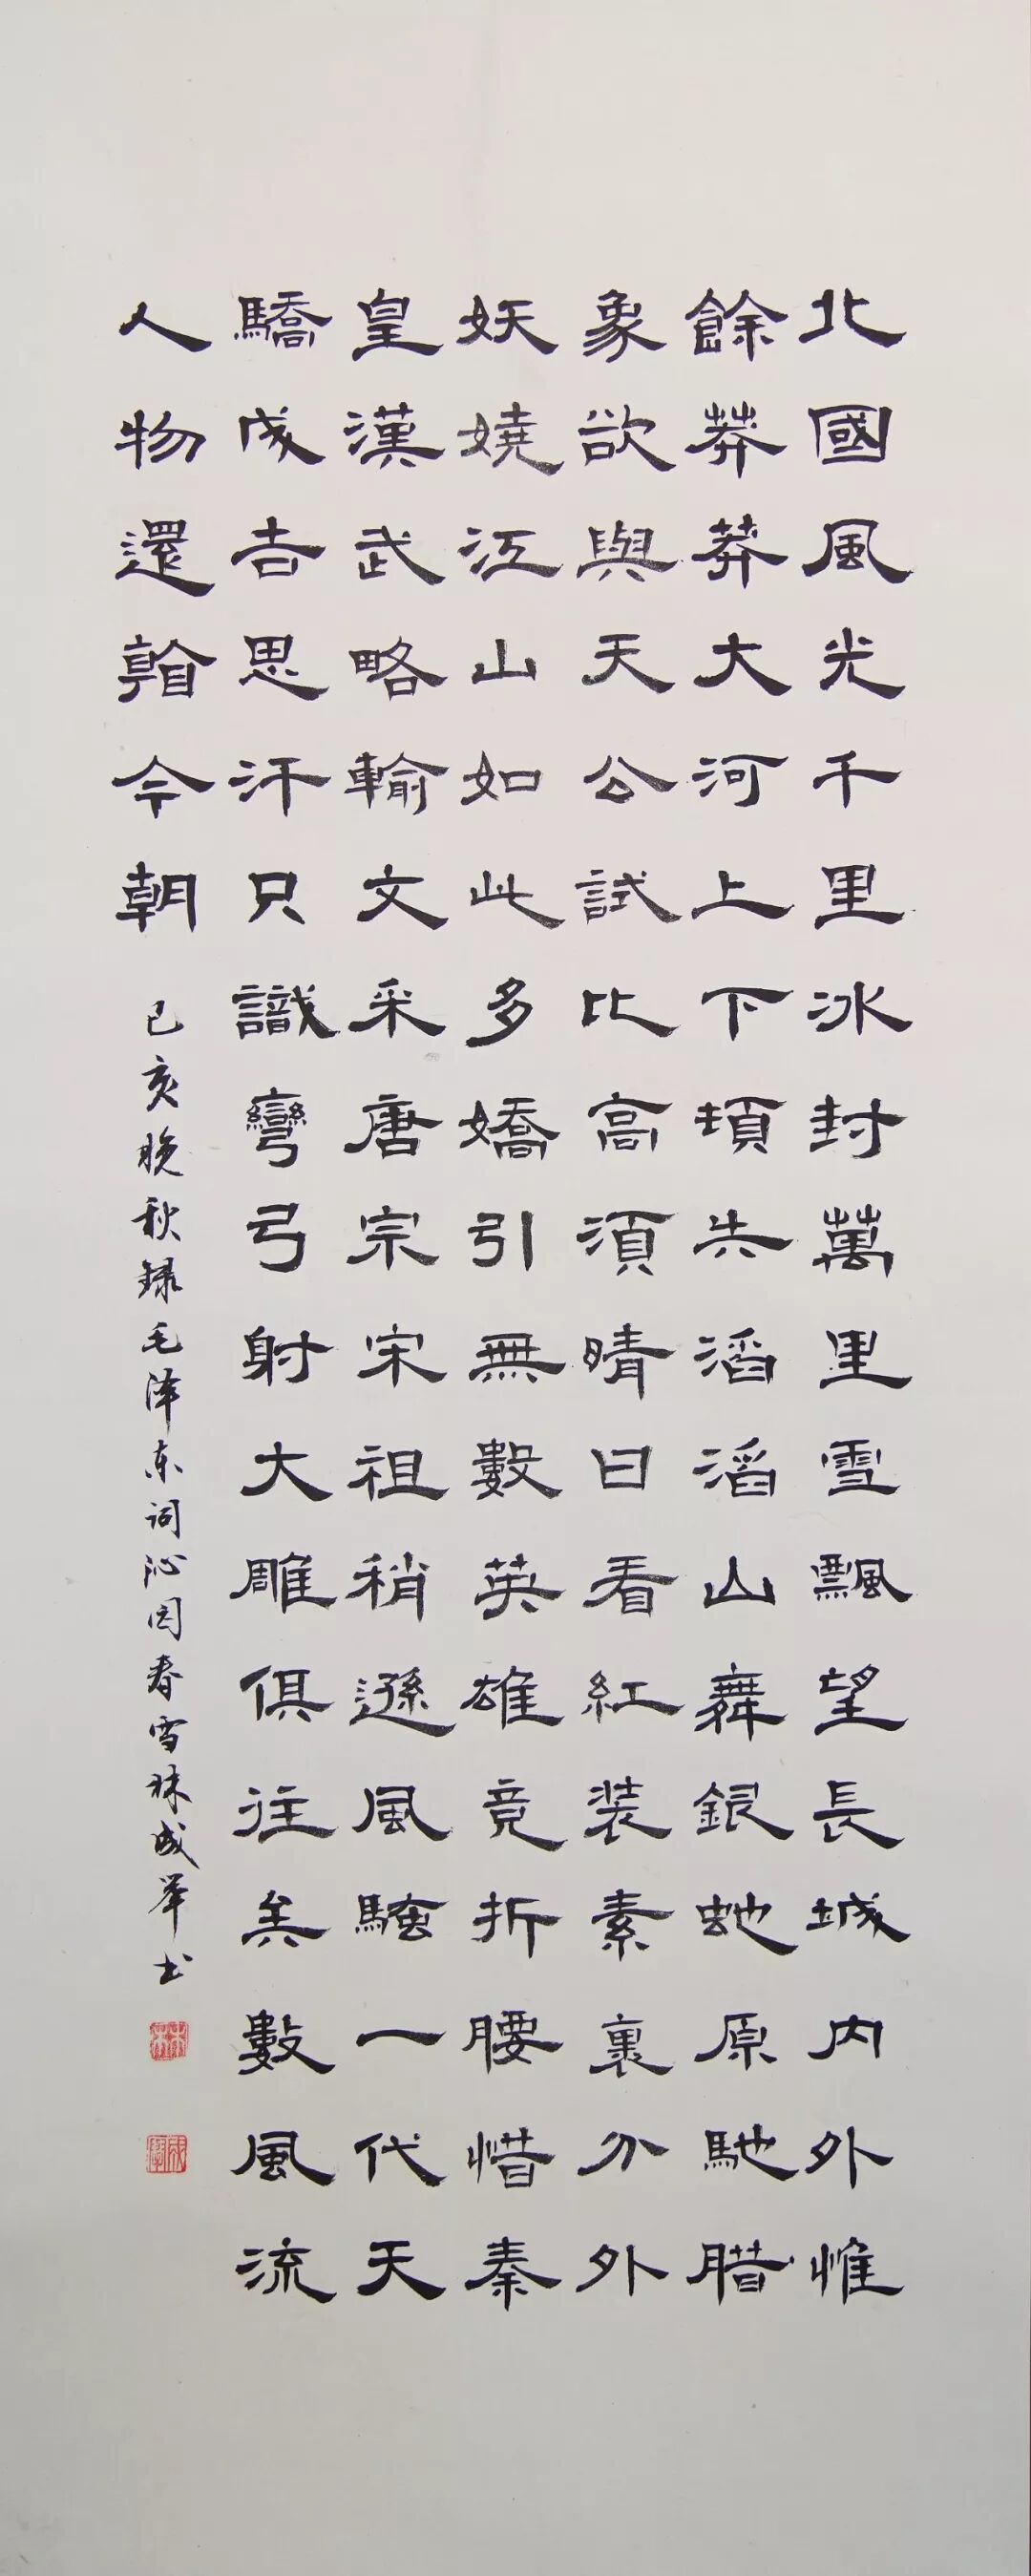 北國風光千里冰封萬里雪飄望長城内外惟
餘莽莽大河上下頓失滔滔山舞銀蛇原馳腊
象欲與天公試比高須晴日看紅装素裹分外
妖嬈江山如此多嬌引無數英雄竞折腰惜秦
皇漢武略輸文采唐宗宋祖稍遜風騷一代天
驕成吉思汗只識彎弓射大雕俱往矣數風流
人物還看今朝
己亥晚秋録毛泽东词沁园春雪林成举书